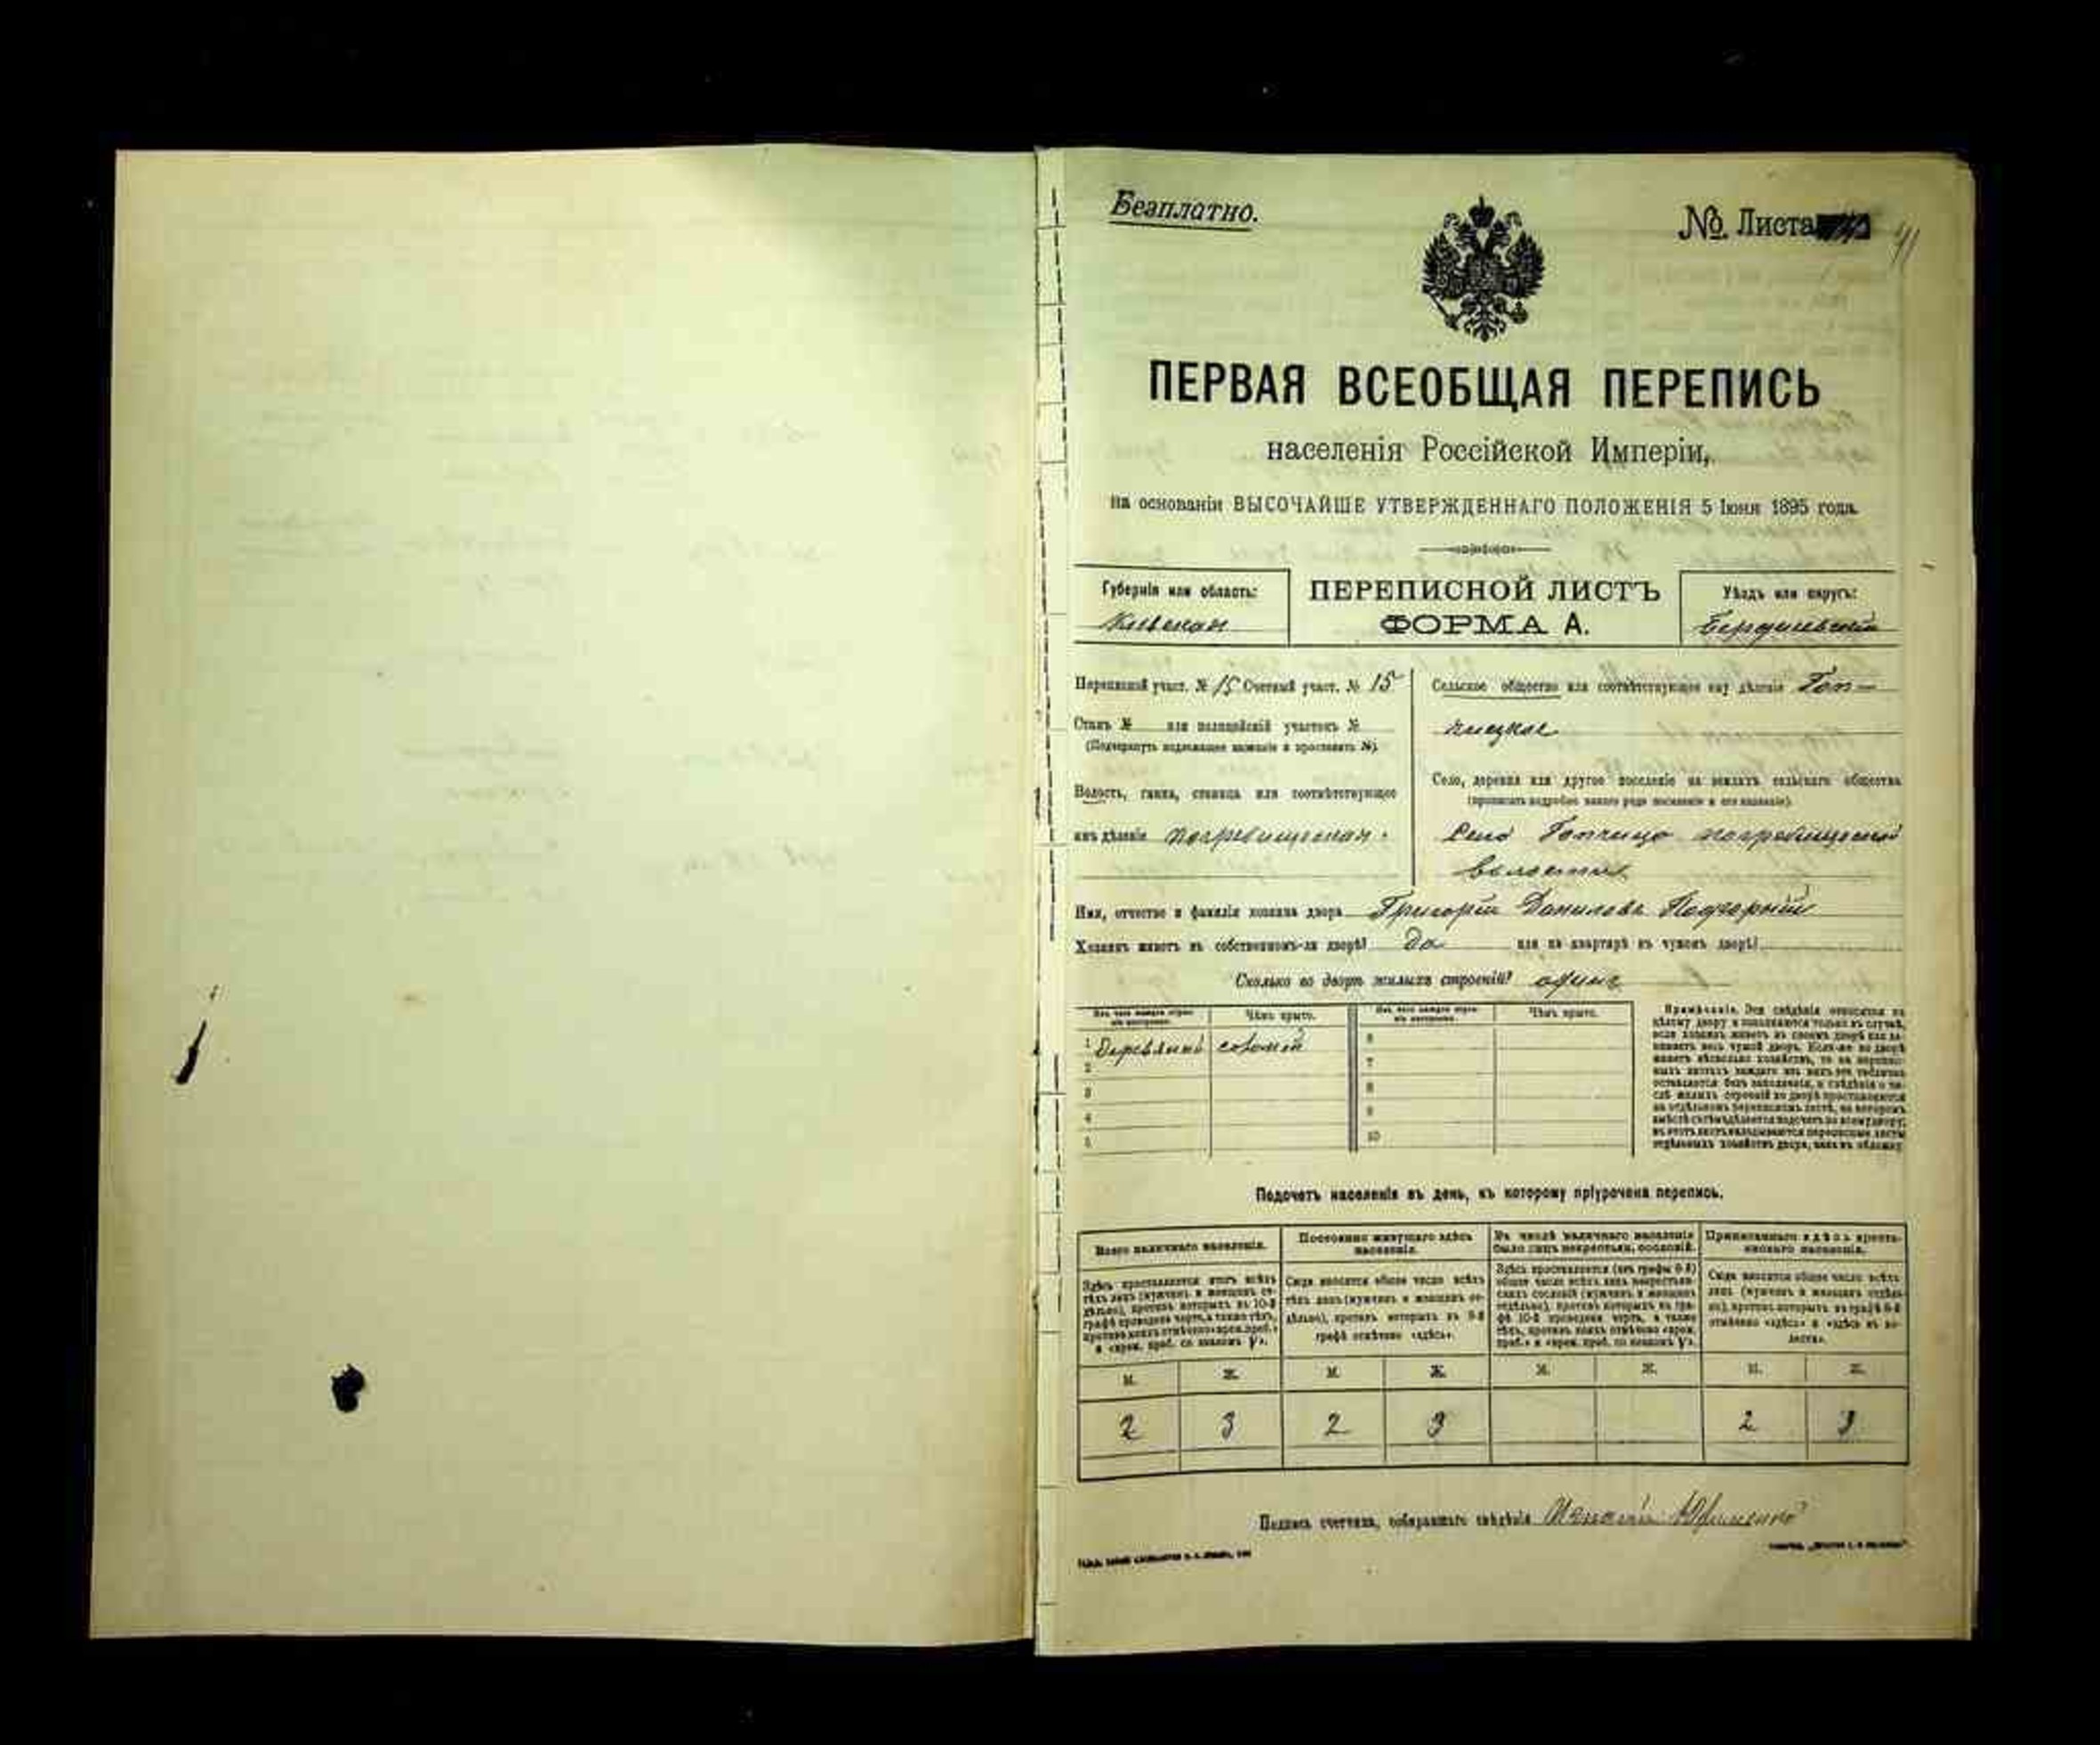 Безплатно.
№ Листа 41
ПЕРВАЯ ВСЕОБЩАЯ ПЕРЕПИСЬ
населенія Россійской Имперіи,
на основаніи ВЫСОЧАЙШЕ УТВЕРЖДЕННАГО ПОЛОЖЕНІЯ 5 Іюня 1895 года.
Губернія или область:
Кіевская
ПЕРЕПИСНОЙ ЛИСТЪ
ФОРМА А.
Уѣздъ или округъ:
Бердичевскій
Переписной участ. № 15 Счетный участ. № 15
Станъ № или полицейскій участокъ №
(Подчеркнуть надлежащее названіе и проставить №).
Волость, гмина, станица или соотвѣтствующее
имъ дѣленіе Погребищенская
Сельское общество или соотвѣтствующее ему дѣленіе Гоп-
чицкое
Село, деревня или другое поселеніе на земляхъ сельскаго общества
(прописать подробно какого рода поселеніе и его названіе).
Село Гопчица погребищенской
волости
Имя, отчество и фамилія хозяина двора Григорій Даниловъ Подгорный
Хозяинъ живетъ въ собственномъ-ли дворѣ? да или на квартирѣ въ чужомъ дворѣ?
Сколько во дворѣ жилыхъ строеній? одинъ
Изъ чего каждое строеніе построено.
Чѣмъ крыто.
Изъ чего каждое строеніе построено.
Чѣмъ крыто.
1 Деревяный соломой
2
3
4
5
6
7
8
9
10
Примѣчаніе. Эти свѣдѣнія относятся къ
цѣлому двору и заполняются только въ случаѣ,
если хозяинъ живетъ въ своемъ дворѣ или за-
нимаетъ весь чужой дворъ. Если-же во дворѣ
живетъ нѣсколько хозяйствъ, то на перепис-
ныхъ листахъ каждаго изъ нихъ эта табличка
оставляется безъ заполненія, а свѣдѣнія о чи-
слѣ жилыхъ строеній во дворѣ проставляются
на отдѣльномъ переписномъ листѣ, на которомъ
вмѣстѣ съ тѣмъ дѣлается подсчетъ по всему двору;
въ этотъ листъ вкладываются переписные листы
отдѣльныхъ хозяйствъ двора, какъ въ обложку.
Подсчетъ населенія въ день, къ которому пріурочена перепись.
Всего наличнаго населенія.
Постоянно живущаго здѣсь
населенія.
Въ числѣ наличнаго населенія
было лицъ некрестьян. сословій.
Приписаннаго здѣсь кресть-
янскаго населенія.
Здѣсь проставляется итогъ всѣхъ
тѣхъ лицъ (мужчинъ и женщинъ от-
дѣльно), противъ которыхъ въ 10-й
графѣ проведена черта, а также тѣхъ,
противъ коихъ отмѣчено «врем. преб.»
и «врем. преб. со знакомъ V».
Сюда вносится общее число всѣхъ
тѣхъ лицъ (мужчинъ и женщинъ от-
дѣльно), противъ которыхъ въ 9-й
графѣ отмѣчено «здѣсь».
Здѣсь проставляется (изъ графы 6-й)
общее число всѣхъ лицъ некрестьян-
скихъ сословій (мужчинъ и женщинъ
отдѣльно), противъ которыхъ въ гра-
фѣ 10-й проведена черта, а также
тѣхъ, противъ коихъ отмѣчено «врем.
преб.» и «врем. преб. со знакомъ V».
Сюда вносится общее число всѣхъ
лицъ (мужчинъ и женщинъ отдѣль-
но), противъ которыхъ въ графѣ 8-й
отмѣчено «здѣсь» и «здѣсь въ во-
лости».
М. Ж. М. Ж. М. Ж. М. Ж.
2 3 2 3 2 3
Подпись счетчика, собиравшаго свѣдѣнія